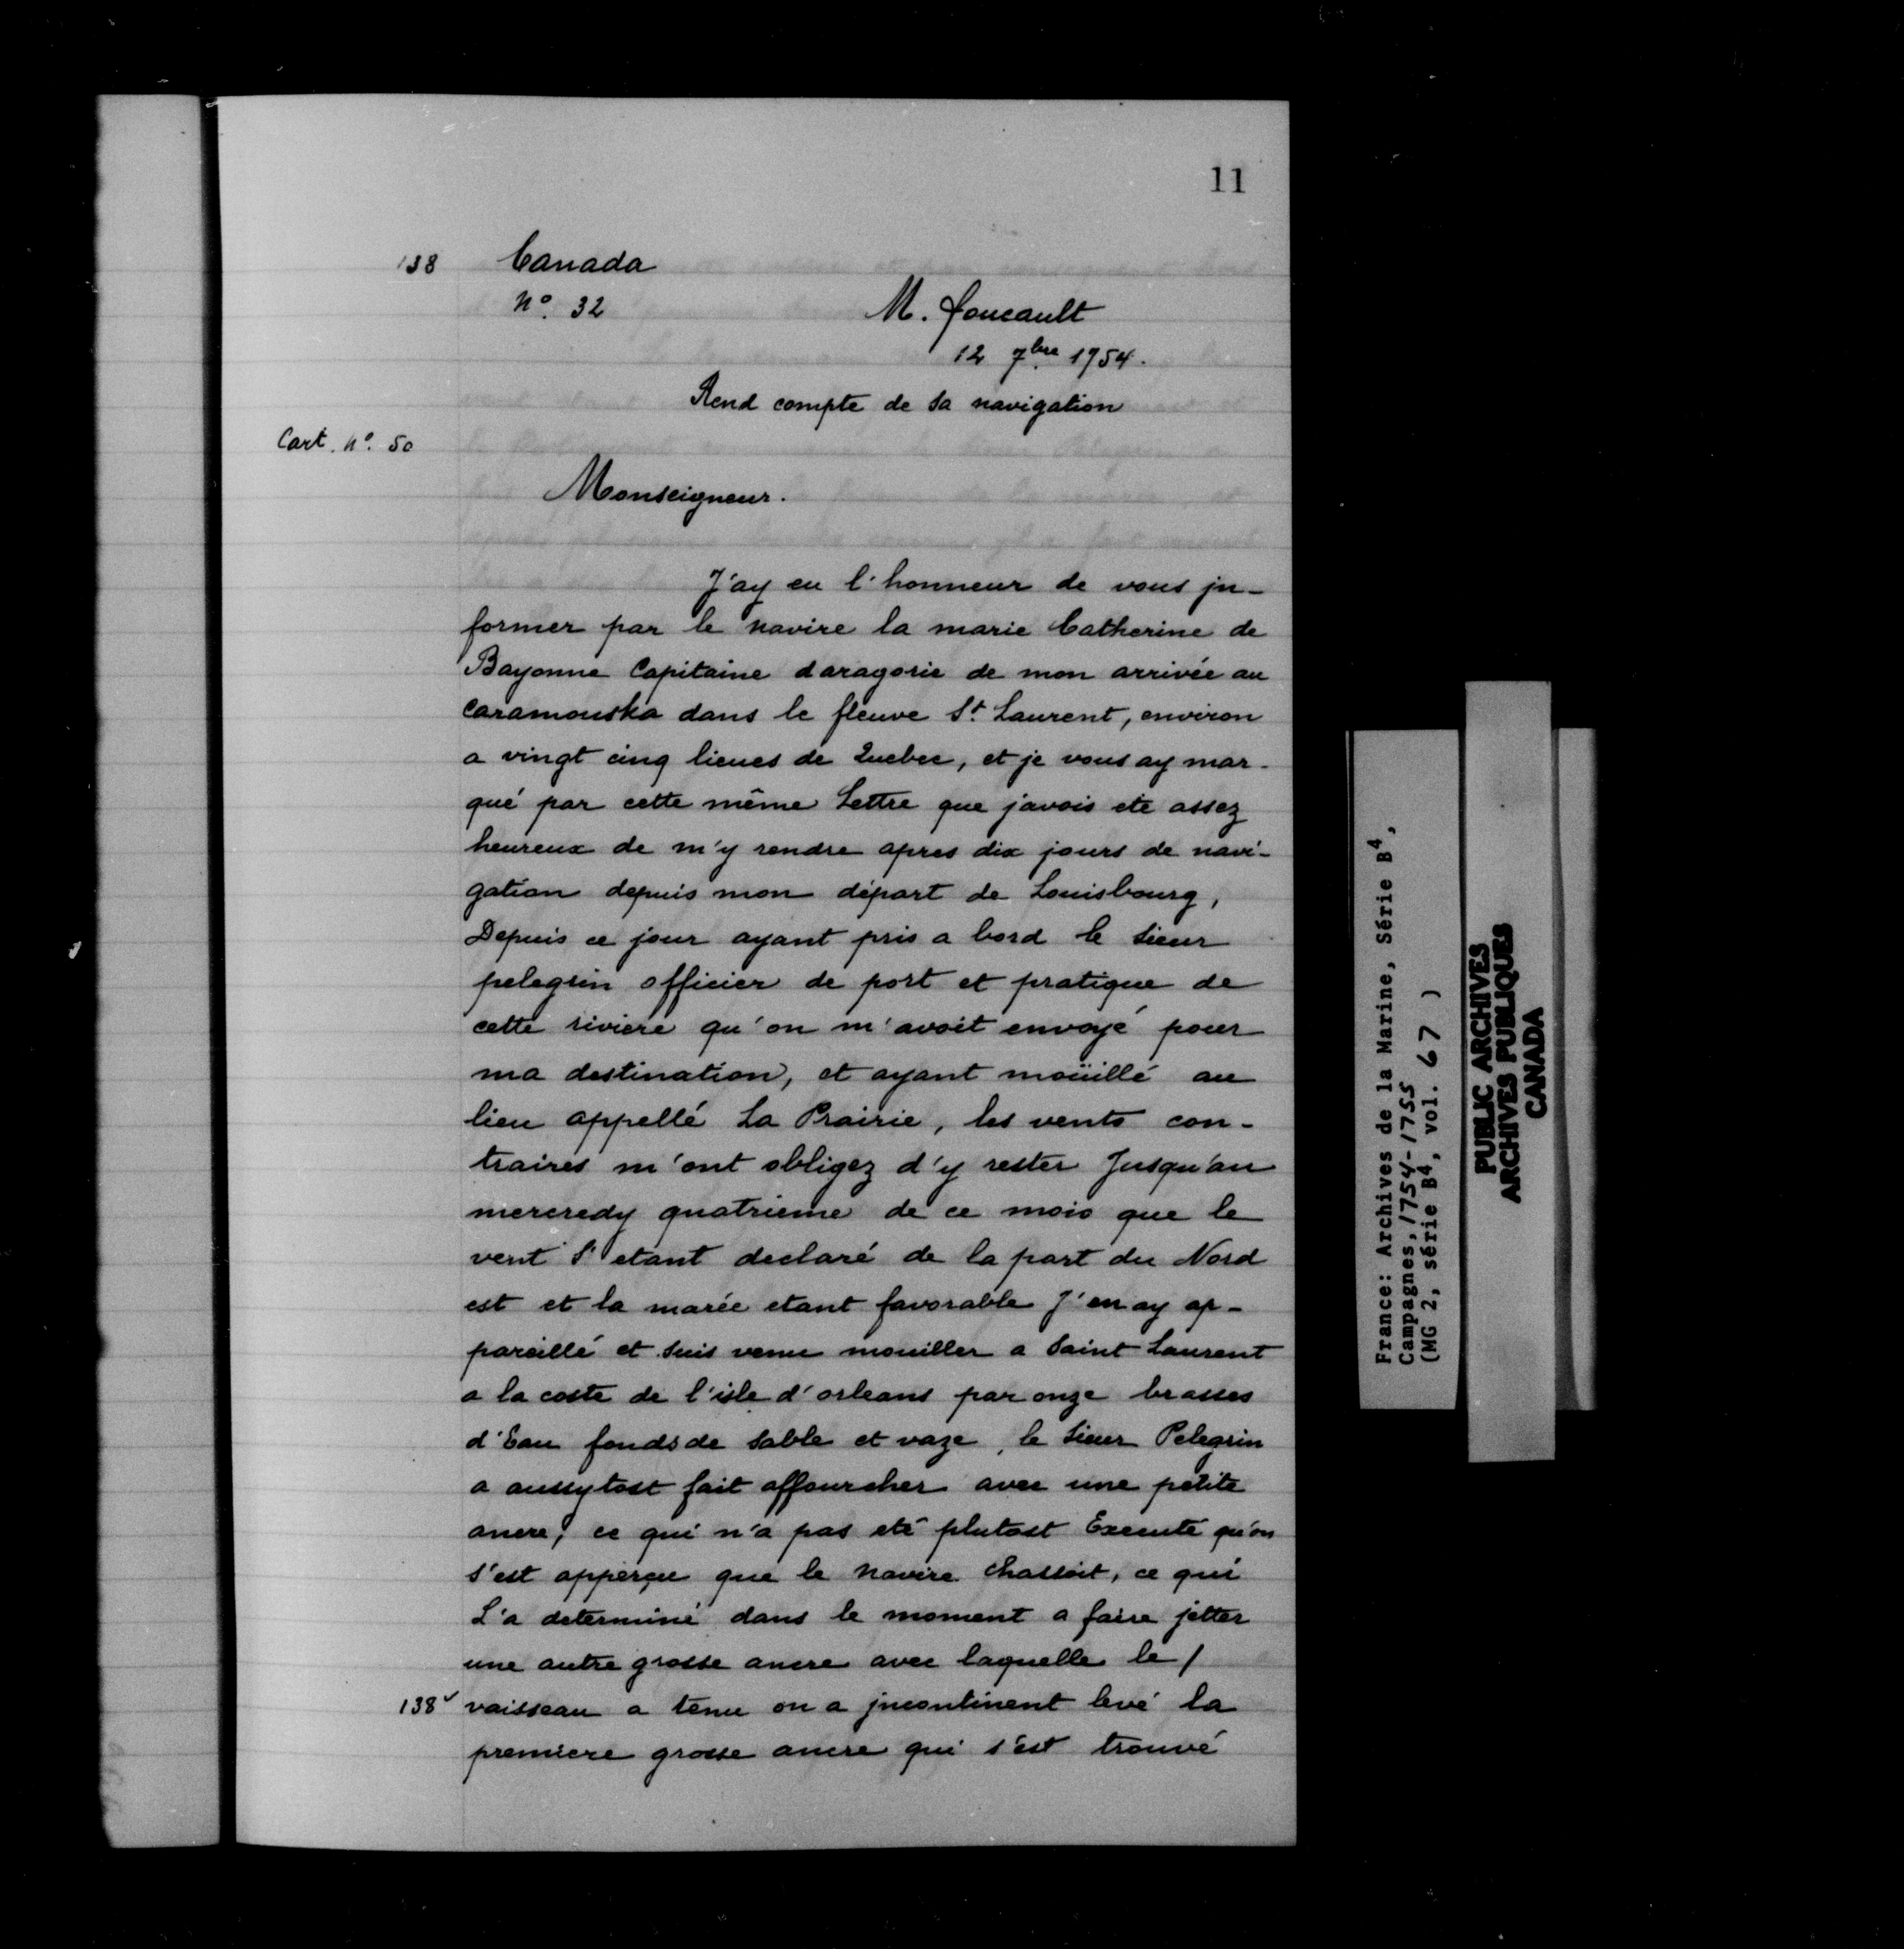 11
138 Canada
Nº. 32
M. Foucault
12 7bre 1754.
Rend compte de sa navigation
Cart. Nº. 50
Monseigneur.
J'ay eu l'honneur de vous jn-
former par le navire la marie Catherine de
Bayonne Capitaine daragorie de mon arrivée au
Caramouska dans le fleuve St. Laurent, environ
a vingt cinq lieues de Quebec, et je vous ay mar-
qué par cette même Lettre que j'avois eté assez
heureux de m'y rendre apres dix jours de navi-
gation depuis mon départ de Louisbourg,
Depuis ce jour ayant pris a bord le Sieur
pelegrin officier de port et pratique de
cette riviere qu'on m'avoit envoyé pour
ma destination, et ayant moüillé au
lieu appellé La Prairie, les vents con-
traires m'ont obligez d'y rester Jusqu'au
mercredy quatrieme de ce mois que le
vent S'etant declaré de la part du Nord
est et la marée etant favorable J'en ay ap-
pareillé et suis venu mouiller a Saint Laurent
a la coste de l'isle d'orleans par onze brasses
d'Eau fonds de sable et vaze, le Sieur Pelegrin
a aussytost fait affourcher avec une petite
ancre, ce qui n'a pas eté plutost Executé qu'on
s'est apperçu que le navire chassoit, ce qui
L'a determiné dans le moment a faire jetter
une autre grosse ancre avec laquelle le /
138v vaisseau a tenu on a jncontinent levé la
premiere grosse ancre qui s'est trouvé
France: Archives de la Marine, Série B4,
Campagnes, 1754-1755
(MG 2, série B4, vol. 67 )
PUBLIC ARCHIVES
ARCHIVES PUBLIQUES
CANADA